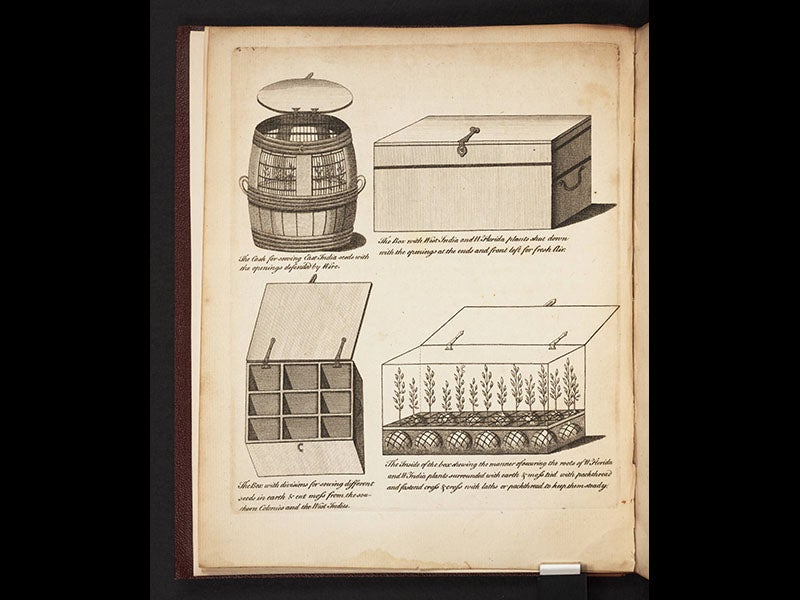 The Cask for sowing East India seeds with
the openings defended by Wire.
The Box with West India and W. Florida plants shut down
with the openings at the ends and front left for fresh Air.
The Box with divisions for sowing different
seeds in earth & cut moss from the sou-
thern Colonies and the West Indies.
The Inside of the box shewing the manner of securing the roots of W. Florida
and W. India plants surrounded with earth & moss tied with packthread
and fastend cross & cross with laths or packthread to keep them steady.